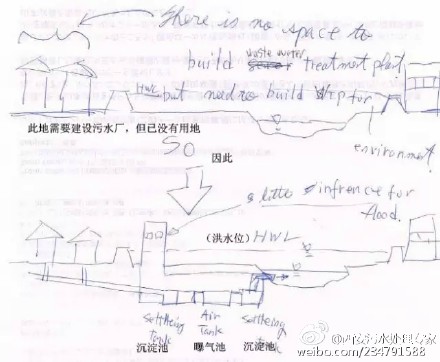 there is no space to
build waste water treatment plant
HWL but need to build WTP for
environment
此地需要建设污水厂，但已没有用地
SO
因此
a little infrence for
flood.
（洪水位）HWL
Settleing Tank
Air Tank
Settleing
沉淀池
曝气池
沉淀池
weibo.com/234791588